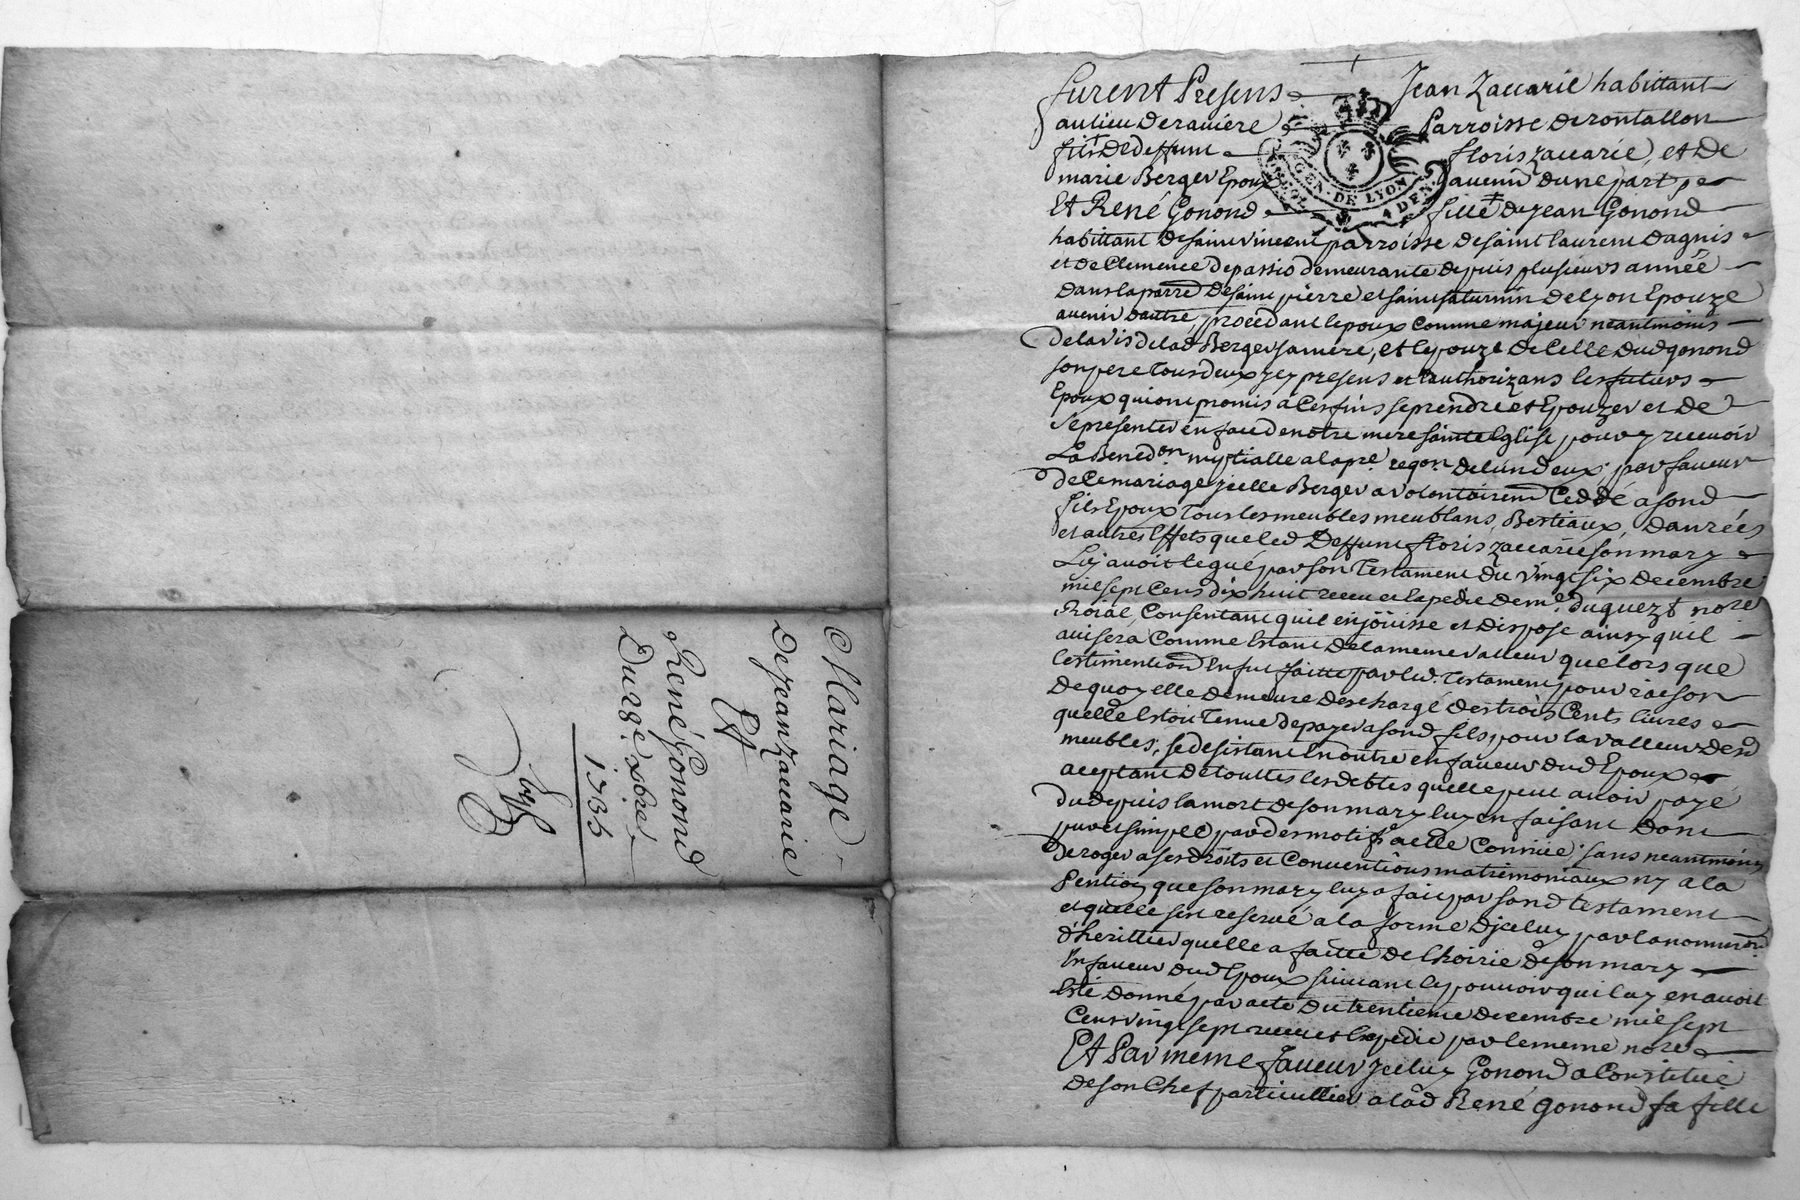 Mariage
De Jean Zaccarie
Et
René Gonond
Du 28e xbre
1735
furent Presens Jean Zaccarie habittant
au lieu de raviere Parroisse de rontallon
fils De deffunt floris zaccarie, et De
marie Berger Epoux avenir dune part
GEN. DE LYON
4 DEN.
Et René Gonond fille de Jean Gonond
habittant de saint vincent parroisse de saint laurent dagnis
et de Clemence depassio demeurante depuis plusieurs année
dans la parre De saint pierre et saint saturnin de lyon Epouze
avenir dautre, procedant lepoux comme majeur neantmoins
de lavis de lad Berger sa mere, et lepouze de celle dud gonond
son pere tous deux jcy presens et authorizans les futurs
Epoux qui ont promis a ces fins se prendre et Epouzer et de
se presenter en face de notre mere sainte Eglise pour y recevoir
La Benedon nuptialle a la pre reqon de lun deux par faveur
de ce mariage jcelle Berger a volontairemt Ceddé a sond
fils Epoux tous les meubles meublans, Bestiaux, danrées
et autres Effets que led Deffunt floris zaccarie son mary
Luy avoit legué par son testament du vingt six decembre
mil sept Cens dix huit receu et Expedie de me duguezt nore
Roial, Consentant quil en jouisse et dispose ainsy quil
avisera Comme Estant de la meme valleur que lors que
lestimention En fut faitte par led. testament pour raison
de quoy elle demeure deschargé des trois Cents livres
quelle Estoit tenue de payer a sond fils pour la valleur desd
meubles, se desistant En outre en faveur dud Epoux
aceptant de touttes les debtes quelle peut avoir payé
du depuis la mort de son mary luy en faisant Don
pur et simple par des motifs a elle Connüe sans neantmoins
deroger a ses droits et Conventions matrimoniaux ny a la
Pention que son mary luy a fait par sond testament
et quelle sest reservé a la forme Djceluy par la nominaon
dherittier quelle a faitte de lhoirie de son mary
En faveur dud Epoux suivant le pouvoir qui luy en avoit
Esté donné par acte Du trentieme decembre mil sept
Cens vingt sept receu et Expedie par le meme nore
Et Par meme faveur jceluy Gonond a Constitué
de son Chef particullier a lad René gonond sa fille